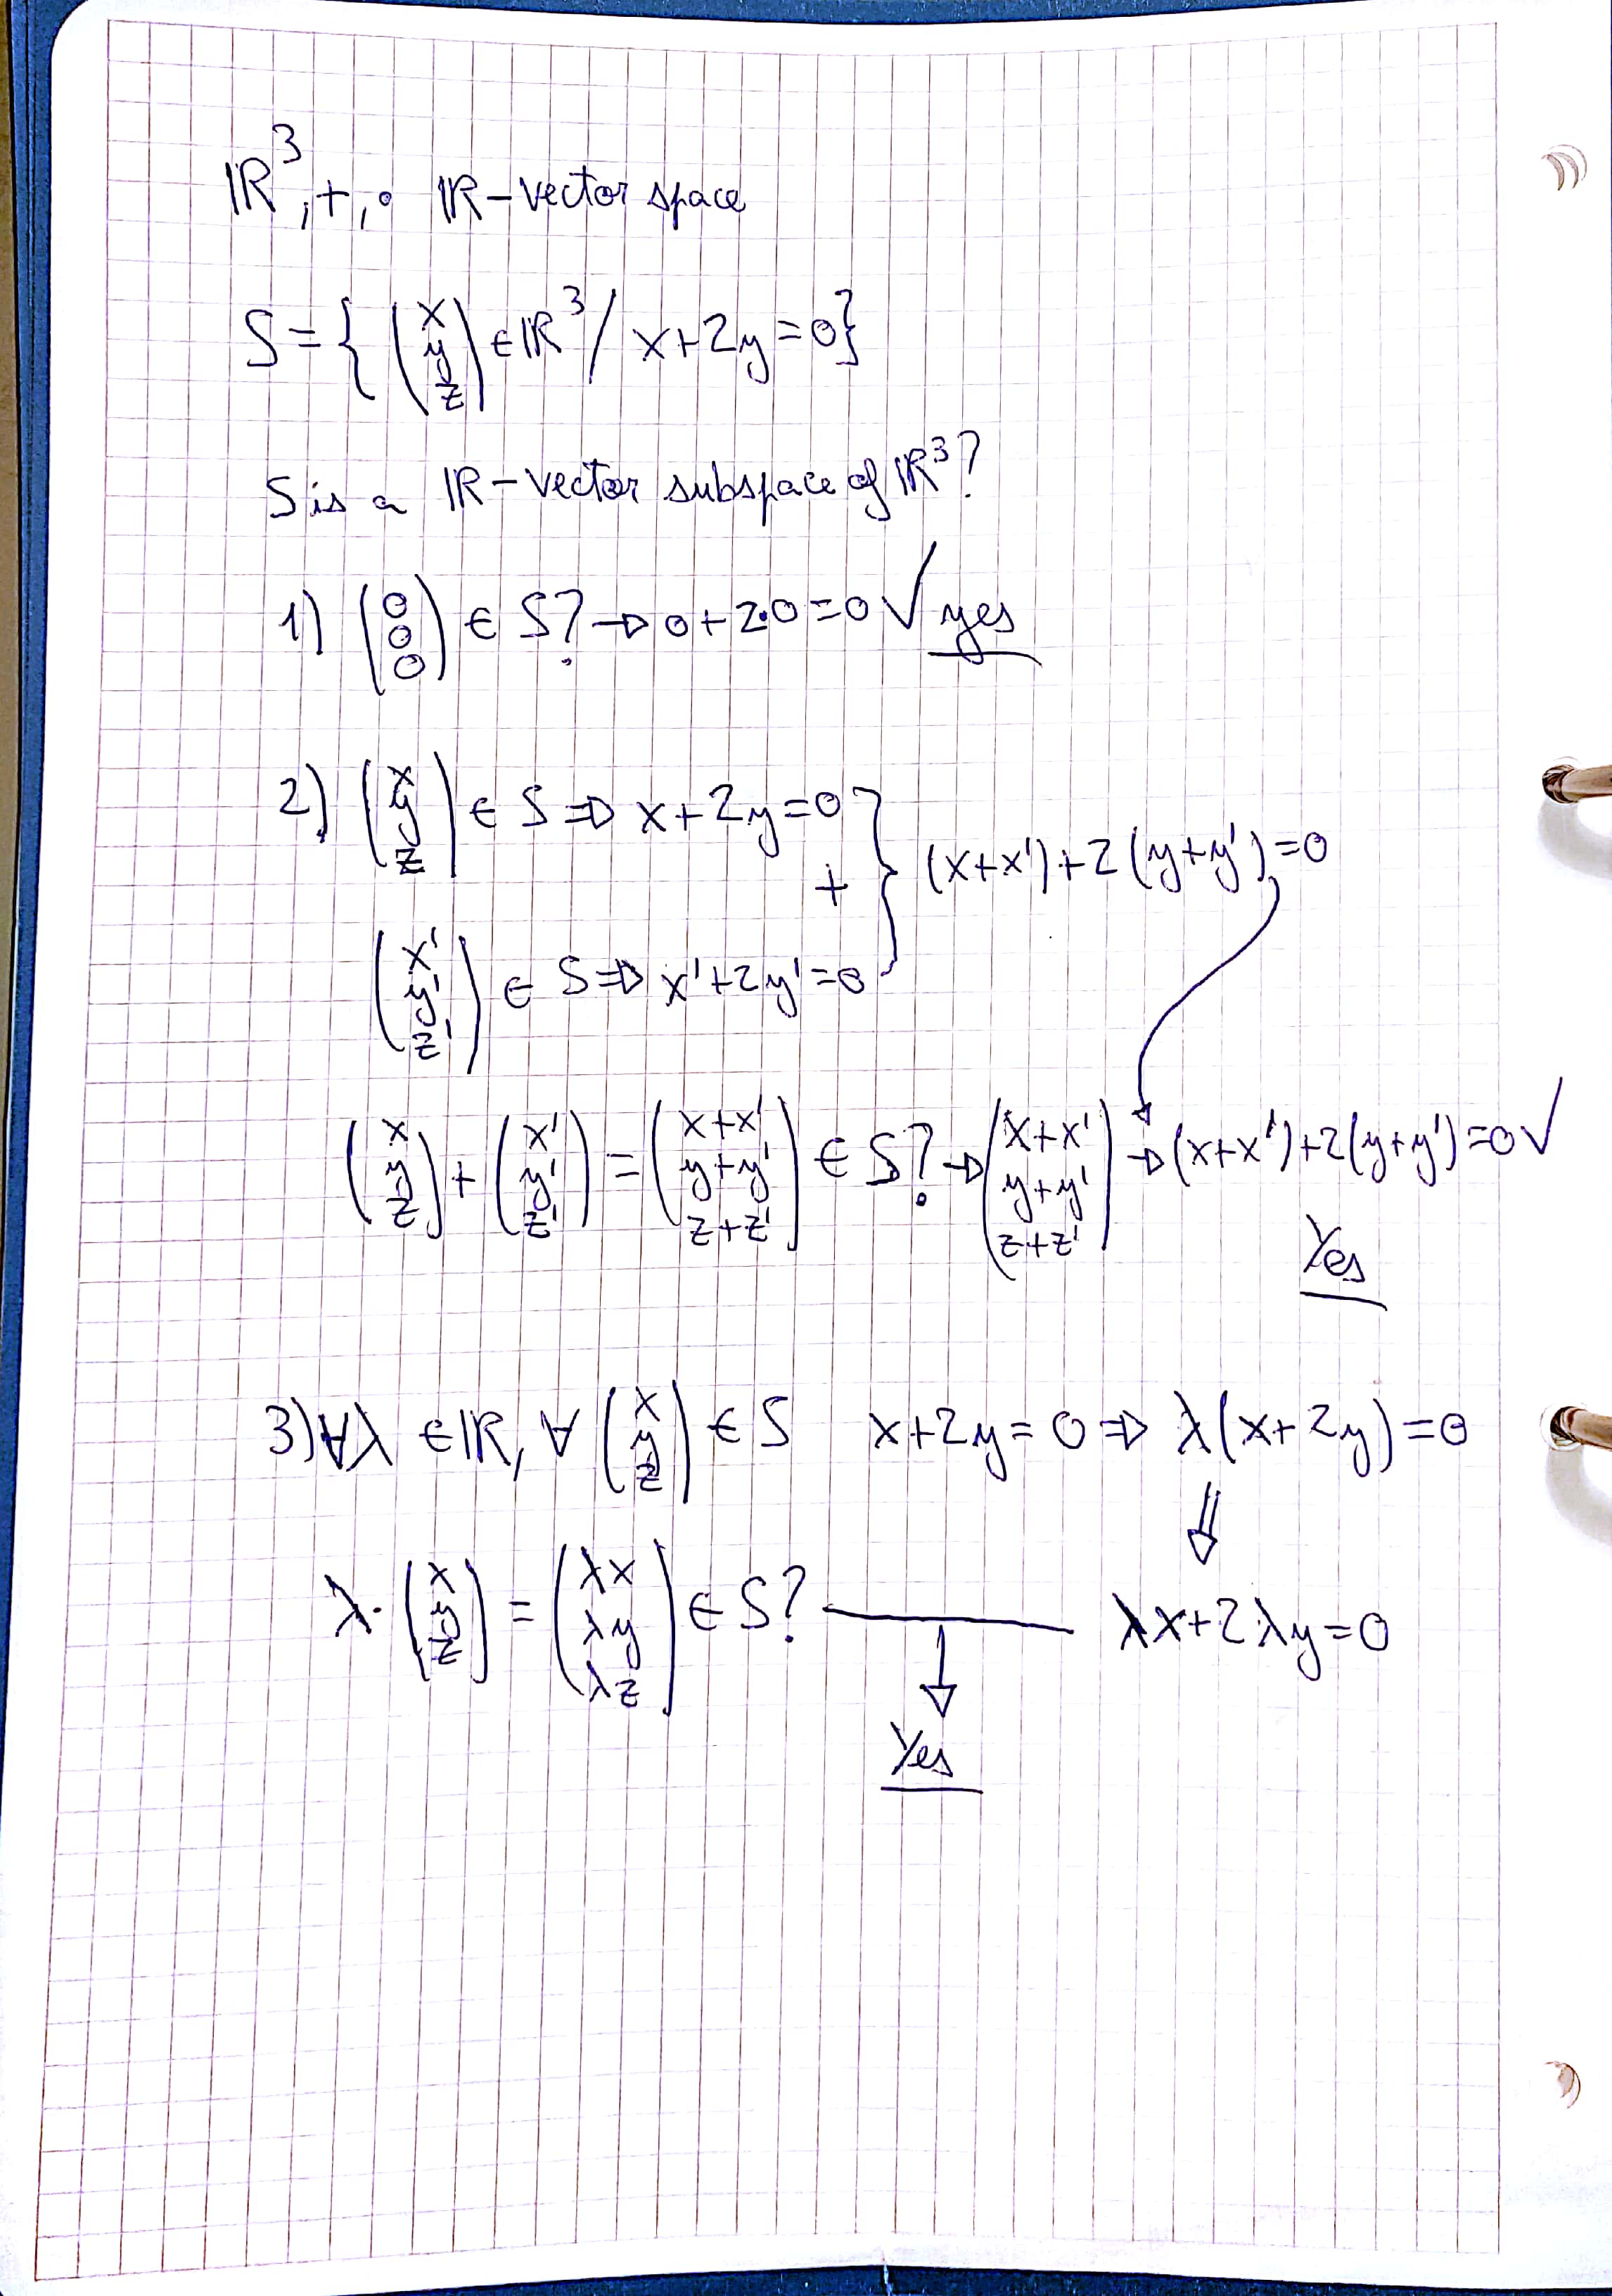 ℝ³, +, ∘ ℝ-vector space
S = { (x y z) ∈ ℝ³ / x+2y=0 }
S is a ℝ-vector subspace of ℝ³?
1) (0 0 0) ∈ S? → 0+2·0=0 √ yes
2) (x y z) ∈ S ⇒ x+2y=0
+ } (x+x')+2(y+y')=0
(x' y' z') ∈ S ⇒ x'+2y'=0
(x y z) + (x' y' z') = (x+x' y+y' z+z') ∈ S? → (x+x' y+y' z+z') → (x+x')+2(y+y')=0 √
Yes
3) ∀λ ∈ ℝ, ∀ (x y z) ∈ S x+2y=0 ⇒ λ(x+2y)=0
⇓
λ· (x y z) = (λx λy λz) ∈ S? — λx+2λy=0
↓
Yes